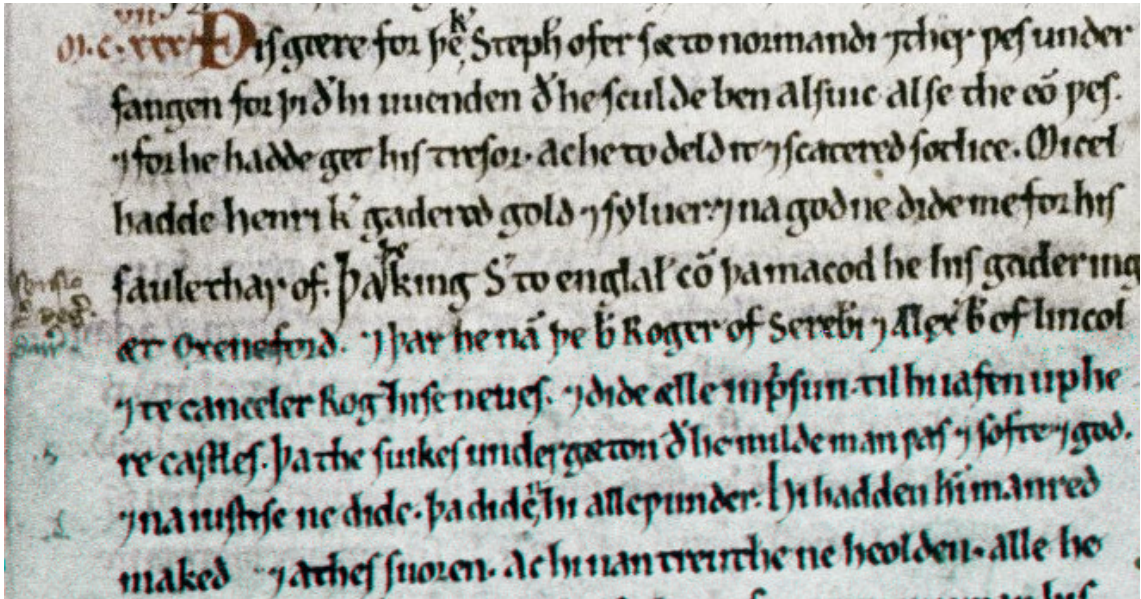 .vii.
m.c.xxx Ðis gære for þe k̄ Steph̄ ofer sæ to normandi ⁊ ther ƿes under
fangen for þi ð hi uuenden ð he sculde ben alsuic alse the eō ƿes.
⁊ for he hadde get his tresor. ac he to deld it ⁊ scatered sotlice. Micel
hadde henri k̄ gadered gold ⁊ syluer. ⁊ na god ne dide me for his
saule thar of. Þa þe king S̄ to englal̄ cō þa macod he his gadering
æt Oxeneford. ⁊ þar he nā þe b̄ Roger of Sereb̄i ⁊ Alex̄ b̄ of lincol
⁊ te canceler Roḡ hise neues. ⁊ dide ælle in p̄sun. til hi iafen up he
re castles. Þa the suikes undergæton ð he milde man ƿas ⁊ softe ⁊ god.
⁊ na iustise ne dide. þa diden hi alle ƿunder. Hi hadden hī manred
maked ⁊ athes suoren. ac hi nan treuthe ne heolden. alle he